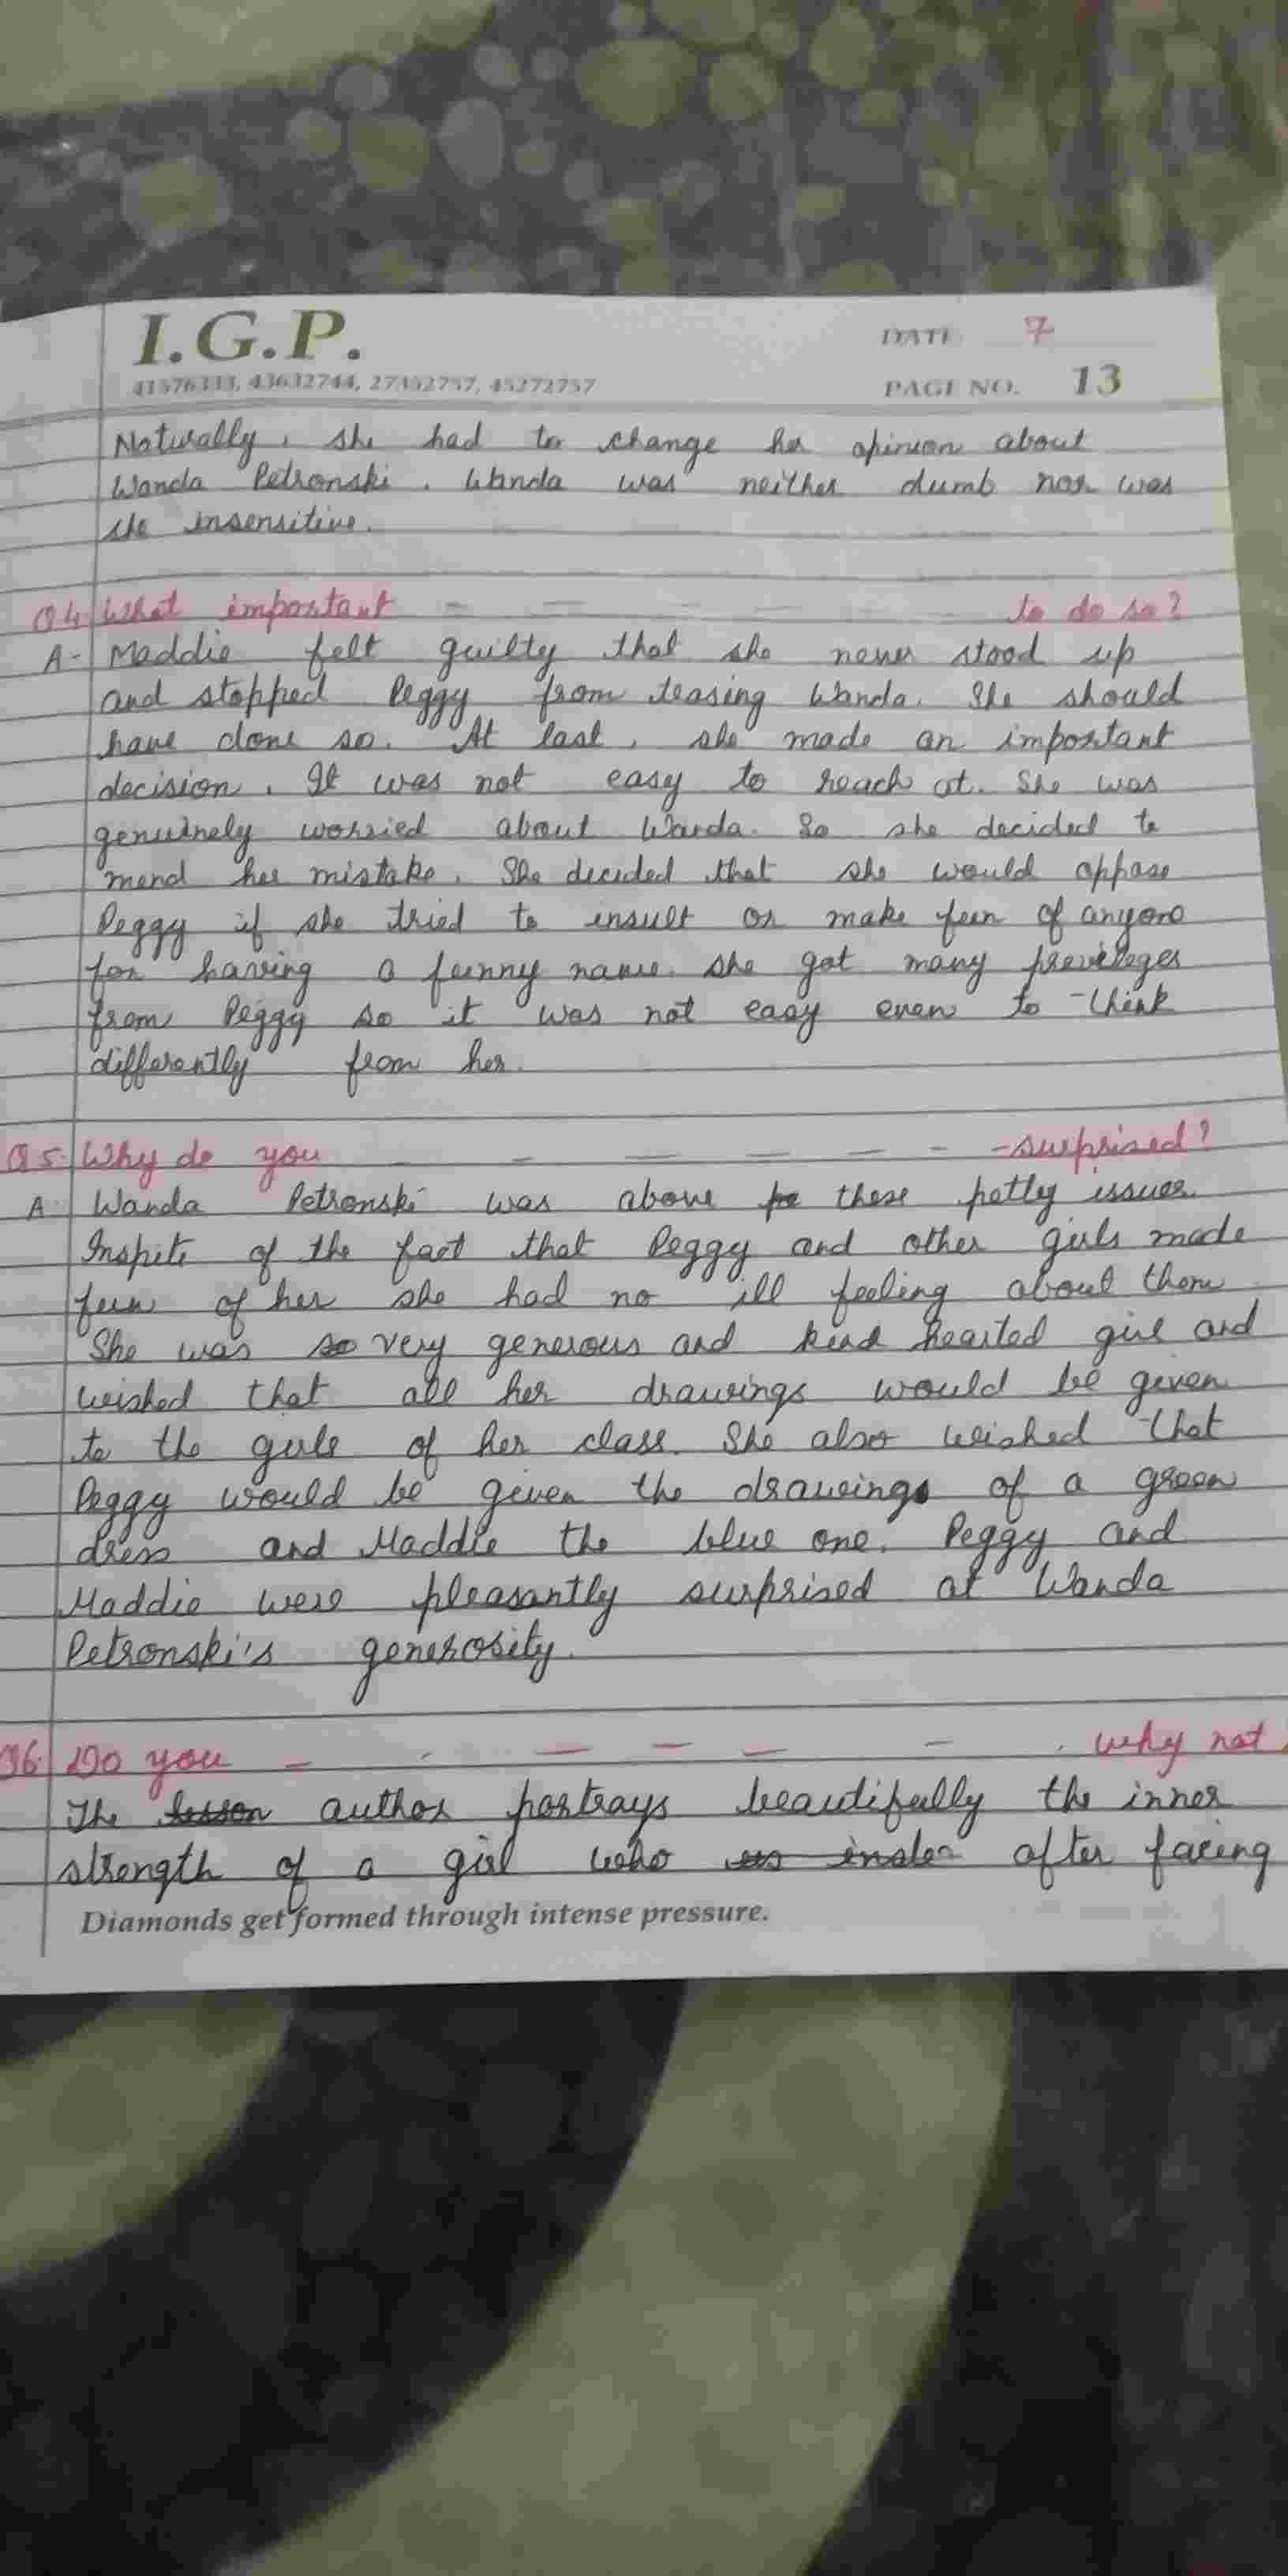 I.G.P.
DATE 7
41576333, 43632744, 27352757, 45272757
PAGE NO. 13
Naturally, she had to change her opinion about
Wanda Petronski. Wanda was neither dumb nor was
she insensitive.
Q4 What important - - - - - to do so?
A- Maddie felt guilty that she never stood up
and stopped Peggy from teasing Wanda. She should
have done so. At last, she made an important
decision. It was not easy to reach at. She was
genuinely worried about Wanda. So she decided to
mend her mistake. She decided that she would oppose
Peggy if she tried to insult or make fun of anyone
for having a funny name. she got many previleges
from Peggy so it was not easy even to think
differently from her.
Q5. Why do you - - - - - - -surprised?
A. Wanda Petronski was above these petty issues
Inspite of the fact that Peggy and other girls made
fun of her she had no ill feeling about them
She was so very generous and kind hearted girl and
wished that all her drawings would be given
to the girls of her class. She also wished that
Peggy would be given the drawings of a green
dress and Maddie the blue one. Peggy and
Maddie were pleasantly surprised at Wanda
Petronski's generosity.
Q6. Do you - - - - - - why not
The lesson author portrays beautifully the inner
strength of a girl who after facing
Diamonds get formed through intense pressure.